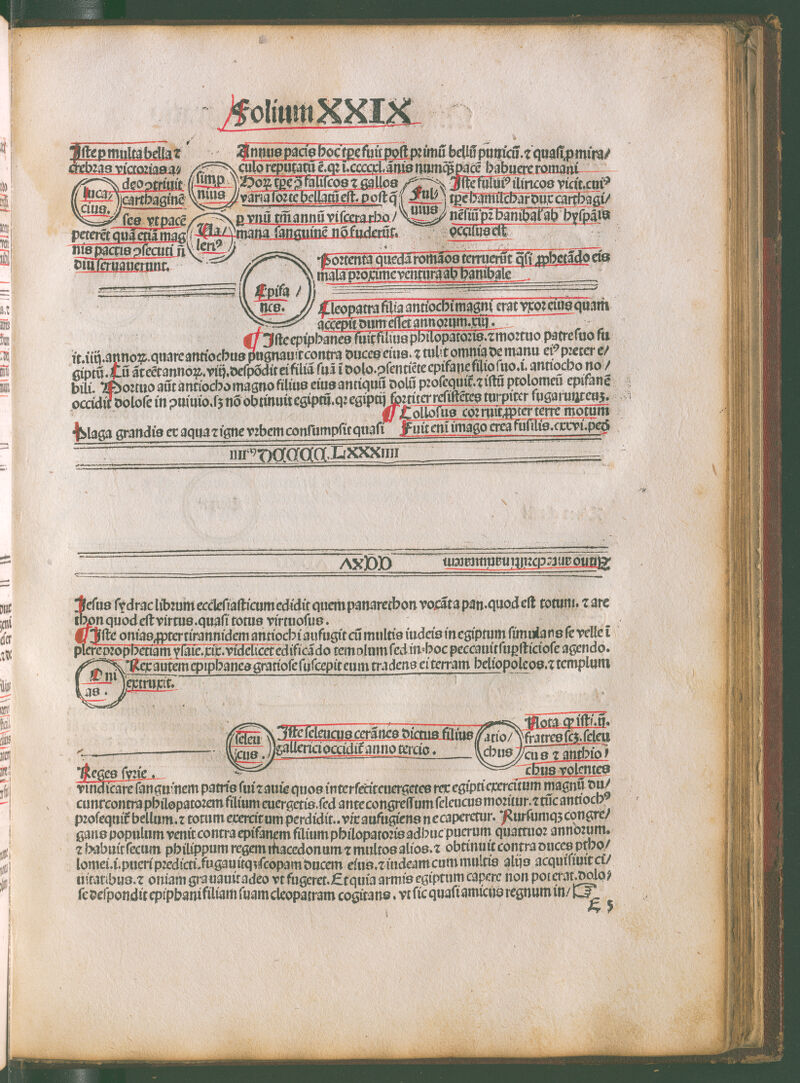 Folium XXIX
Iste p multa bella ⁊
crebras victorias a⸗
deo ɔtriuit
carthaginē
ses vt pacē
peterēt quā etiā mag
nis pactis ɔsecuti nō
diu seruauerunt.
luca⸗
cius.
simp
nius
Va/
leriꝰ
Annus pacis hoc tꝑe fuit post prīmū bellū punicū. ⁊ quasi ꝓ mira/
culo reputatū ē. qr i. ccccxl. ānis nunqꝫ pacē habuere romani
Hoꝝ tꝑe ɔ faliscos ⁊ gallos
varia sorte bellatū est. post q̄
ꝑ vnū tm̄ annū viscera rho/
mana sanguinē nō fuderūt.
Ful/
uius
Iste fuluiꝰ iliricos vicit. cuiꝰ
tꝑe hamilchar dux carthagi/
nēsiū pr̄ hanibal' ab hyspāis
occisus est
Portenta quedā romāos terruerūt q̄si ꝓphetādo eis
mala proxime ventura ab hanibale
Epifa/
nes.
Cleopatra filia antiochi magni erat vxor eius quam
accepit dum esset annorum. xiij.
¶ Iste epiphanes fuit filius philopatoris. ⁊ mortuo patre suo fu
it. iiij. annoꝝ. quare antiochus pugnauit contra duces eius. ⁊ tulit omnia de manu eiꝰ preter e/
giptū. Cū āt eēt annoꝝ. viij. despōdit ei filiā suā ī dolo. ɔsentiēte epifane filio suo. i. antiocho no/
bili. Mortuo aūt antiocho magno filius eius antiquū dolū prosequit̄. ⁊ istū ptolomeū epifanē
occidit dolose in ɔuiuio. sꝫ nō obtinuit egiptū. qꝛ egiptij fortiter resistētes turpiter fugarunt eūz.
¶ Collosus corruit. ꝓpter terre motum
Plaga grandis ex aqua ⁊ igne vrbem consumpsit quasi Fuit enī imago erea fusilis. cxxvi. pedū
LXXXIIII
Anno ante cħri natiuitatem
Jesus sydrac librum ecclesiasticum edidit quem panarethon vocāt a pan. quod est totum. ⁊ are
thon quod est virtus. quasi totus virtuosus.
¶ Iste onias ꝓpter tirannidem antiochi aufugit cū multis iudeis in egiptum simulans se velle ī
plere prophetiam ysaie. xix. videlicet edificādo templum sed in hoc peccauit suꝑsticiose agendo.
Oni
as.
Rex autem epiphanes gratiose suscepit eum tradens ei terram heliopoleos. ⁊ templum
extruxit.
seleu
icus.
Iste seleucus cerānēs dictus filius
gallerici occidit̄ anno tercio.
atio/
chus
Nota ꝙ isti. ij.
fratres scꝫ. seleu
cus ⁊ anthio⸗
chus volentes
Reges syrie.
vindicare sanguinem patris sui ⁊ auie quos interfecit euergetes rex egipti exercitum magnū du/
cunt contra philopatorem filium euergetis. sed ante congressum seleucus moritur. ⁊ tūc antiochꝰ
prosequit̄ bellum. ⁊ totum exercitum perdidit.. vix aufugiens ne caperetur. Rursumqꝫ congre/
gans populum venit contra epifanem filium philopatoris adhuc puerum quattuor annorum.
⁊ habuit secum philippum regem macedonum ⁊ multos alios. ⁊ obtinuit contra duces ptho/
lomei. i. pueri predicti. fugauitqꝫ scopam ducem eius. ⁊ iudeam cum multis alijs acquisiuit ci/
uitatibus. ⁊ oniam grauauit adeo vt fugeret. Et quia armis egiptum capere non poterat. dolo⸗
se despondit epiphani filiam suam cleopatram cogitans. vt sic quasi amicus regnum in/☞
E 5